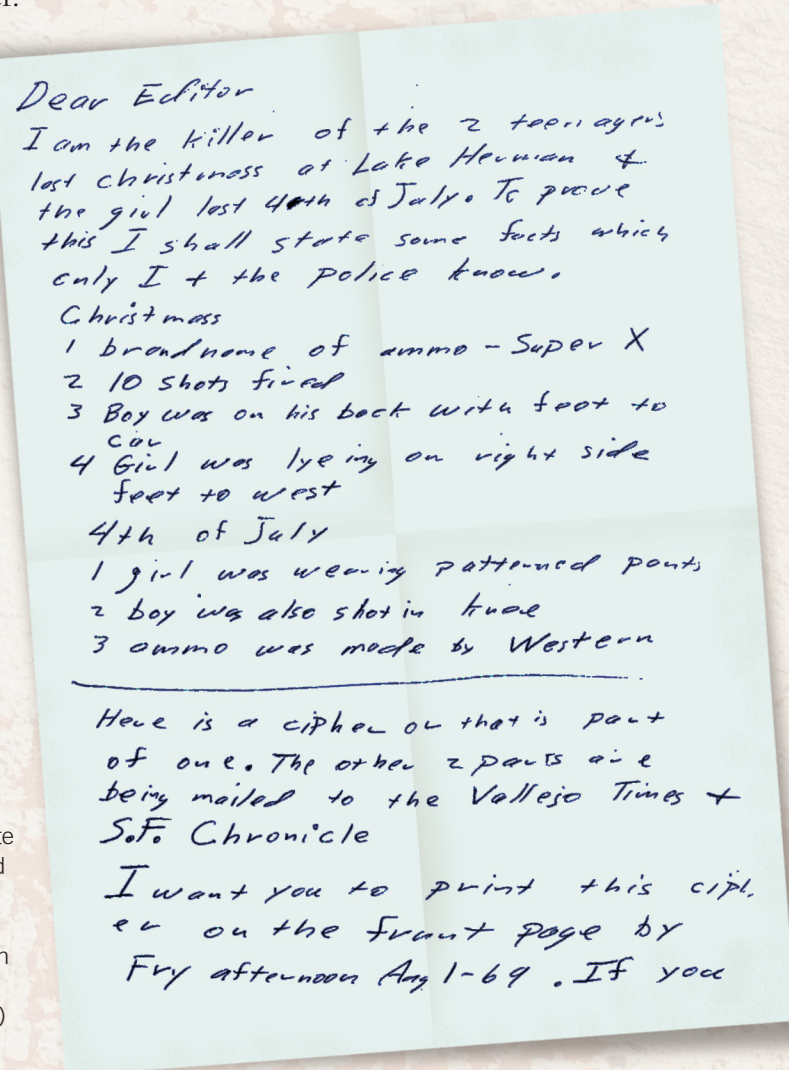 er.
Dear Editor
I am the killer of the 2 teenagers
last christmass at Lake Herman &
the girl last 4th of July. To prove
this I shall state some facts which
only I + the police know.
Christmass
1 brand name of ammo - Super X
2 10 shots fired
3 Boy was on his back with feet to
car
4 Girl was lyeing on right side
feet to west
4th of July
1 girl was wearing patterned pants
2 boy was also shot in knee
3 ammo was made by Western
Here is a cipher or that is part
of one. The other 2 parts are
being mailed to the Vallejo Times +
S.F. Chronicle
I want you to print this ciph
er on the frunt page by
Fry afternoon Aug 1-69. If you
te
d
n
)